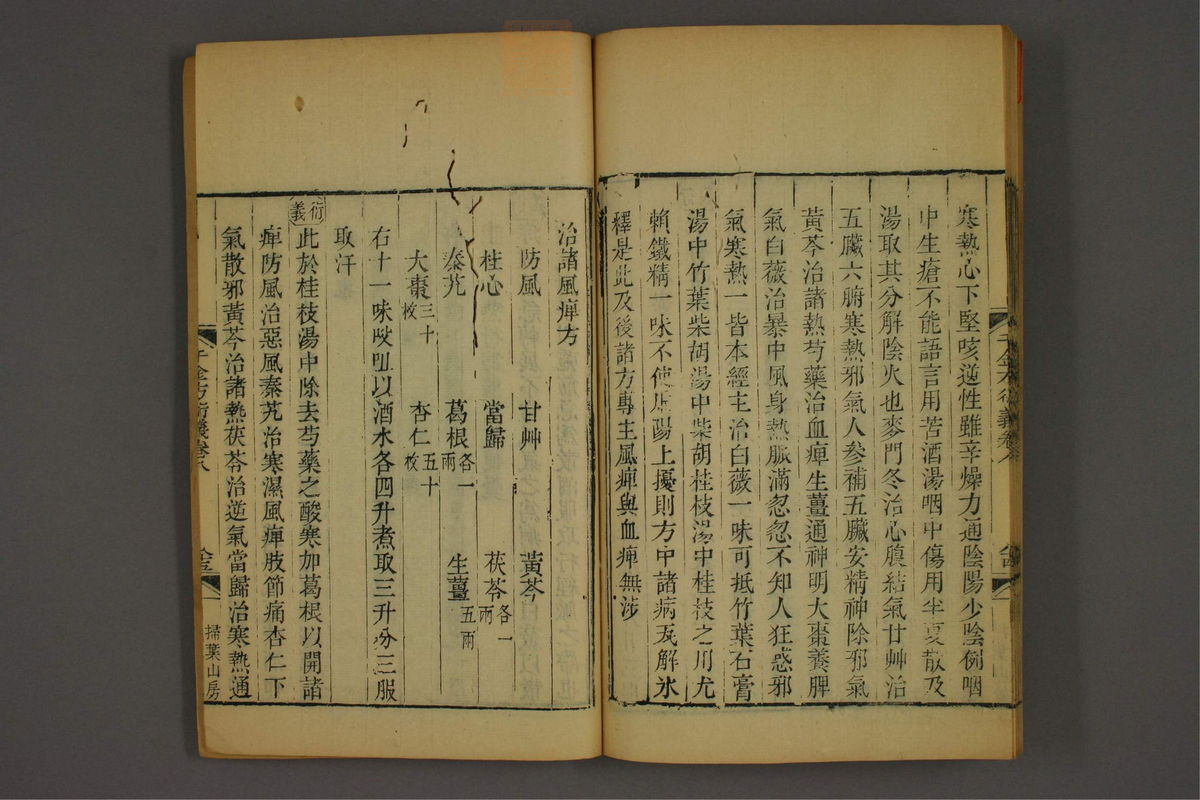 寒熱心下堅咳逆性雖辛燥力通陰陽少陰例咽
中生瘡不能語言用苦酒湯咽中傷用半夏散及
湯取其分解陰火也麥門冬治心腹結氣甘艸治
五臟六腑寒熱邪氣人參補五臟安精神除邪氣
黃芩治諸熱芍藥治血痺生薑通神明大棗養脾
氣白薇治暴中風身熱脈滿忽忽不知人狂惑邪
氣寒熱一皆本經主治白薇一味可抵竹葉石膏
湯中竹葉柴胡湯中柴胡桂枝湯中桂枝之用尤
賴鐵精一味不使風陽上擾則方中諸病瓦解氷
釋是此及後諸方專主風痺與血痺無涉
千金方衍義卷八
治諸風痺方
防風 甘艸 黃芩
桂心 當歸 茯苓各一兩
秦艽 葛根各一兩 生薑五兩
大棗三十枚 杏仁五十枚
右十一味㕮咀以酒水各四升煮取三升分三服
取汗
衍義此於桂枝湯中除去芍藥之酸寒加葛根以開諸
痺防風治惡風秦艽治寒濕風痺肢節痛杏仁下
氣散邪黃芩治諸熱茯苓治逆氣當歸治寒熱通
千金方衍義卷八
掃葉山房